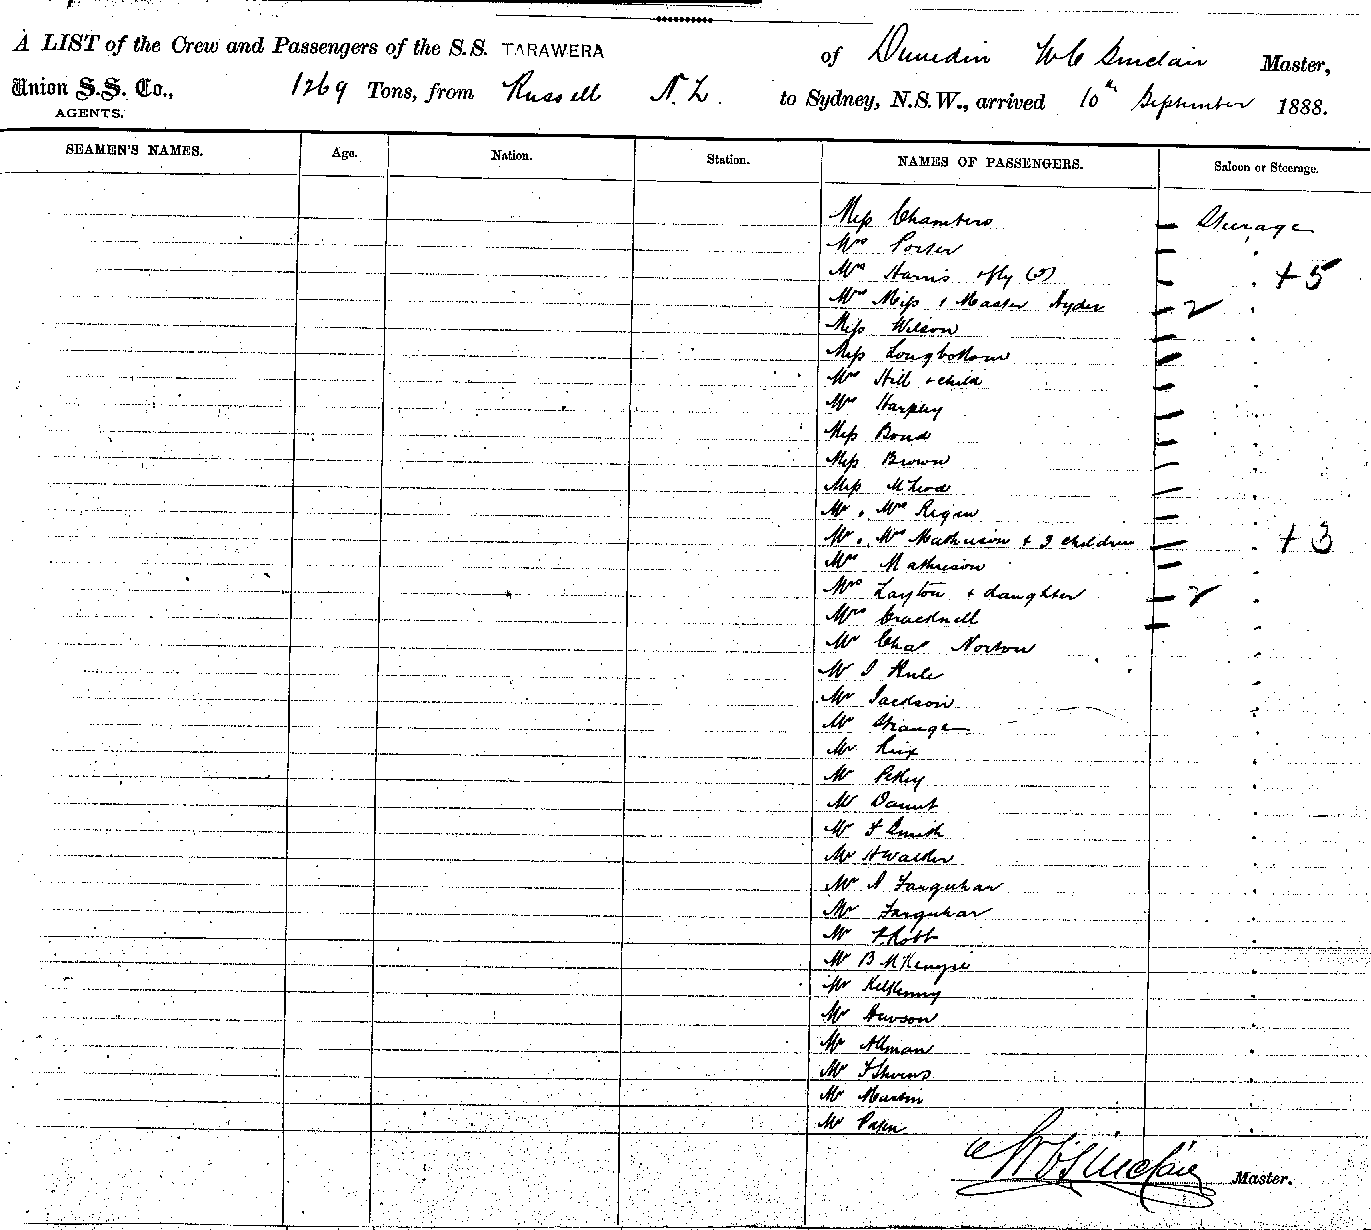 A LIST of the Crew and Passengers of the S.S. TARAWERA of Dunedin W C Sinclair Master,
Union S.S. Co., 1269 Tons, from Russell N.Z. to Sydney, N.S.W., arrived 10th September 1888.
AGENTS.
SEAMEN'S NAMES. Age. Nation. Station. NAMES OF PASSENGERS. Saloon or Steerage.
Miss Chambers Steerage
Mrs Porter
Mrs Harris + fly (5) +5
Mrs Miss + Master Hyder 2
Miss Wilson
Miss Longbottom
Mrs Hill + child
Mrs Harpley
Miss Bond
Miss Brown
Miss McLeod
Mr + Mrs Regan
Mr + Mrs Mathieson + 3 children +3
Mrs Mathieson
Mrs Layton + daughter 2
Mrs Cracknell
Mr Chas Norton
Mr J Hule
Mr Jackson
Mr Strange
Mr Rix
Mr
Mr Daunt
Mr F Smith
Mr H Walker
Mr A Farquhar
Mr Farquhar
Mr Robb
Mr B McKenzie
Mr Kilkenny
Mr Hewson
Mr Allman
Mr F Stevens
Mr Martin
Mr
W C Sinclair Master.